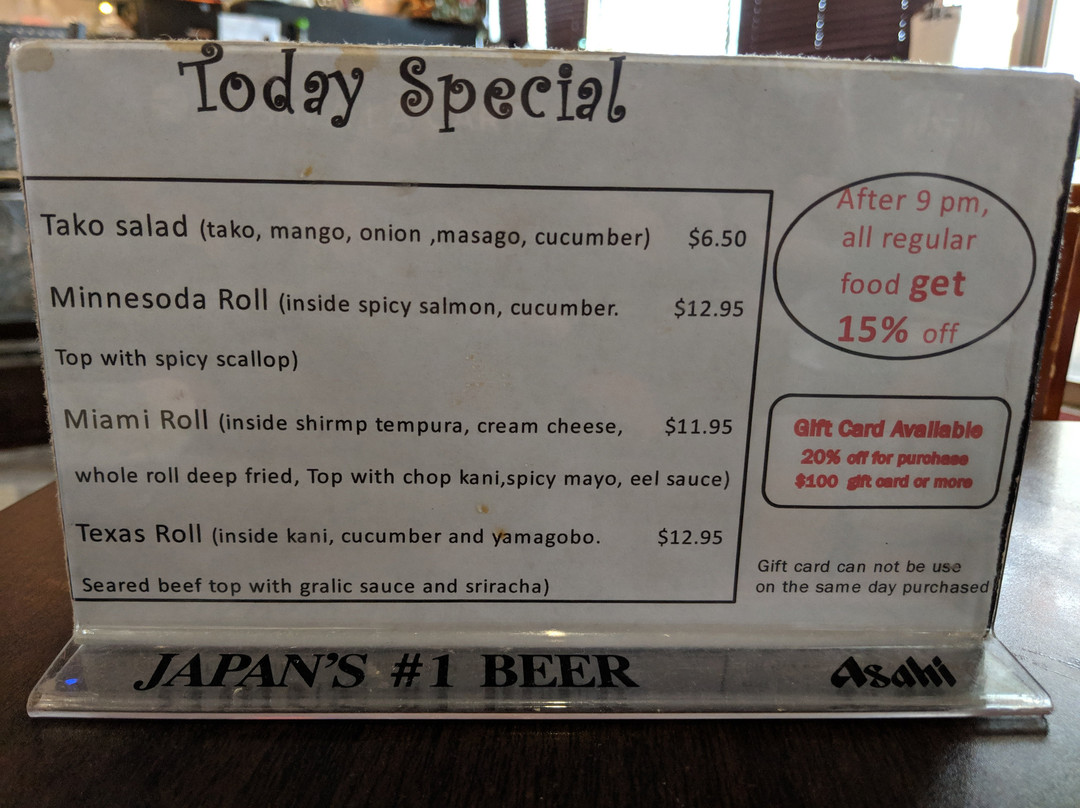 Today Special
Tako salad (tako, mango, onion ,masago, cucumber) $6.50
Minnesoda Roll (inside spicy salmon, cucumber. $12.95
Top with spicy scallop)
Miami Roll (inside shirmp tempura, cream cheese, $11.95
whole roll deep fried, Top with chop kani,spicy mayo, eel sauce)
Texas Roll (inside kani, cucumber and yamagobo. $12.95
Seared beef top with gralic sauce and sriracha)
After 9 pm,
all regular
food get
15% off
Gift Card Available
20% off for purchase
$100 gift card or more
Gift card can not be use
on the same day purchased
JAPAN'S #1 BEER
Asahi